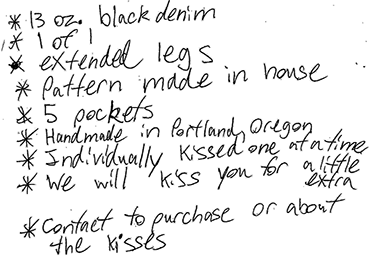 * 13 oz. black denim
* 1 of 1
* extended legs
* Pattern made in house
* 5 pockets
* Handmade in Portland, Oregon
* Individually kissed one at a time
* We will kiss you for a little
extra
* Contact to purchase or about
the kisses